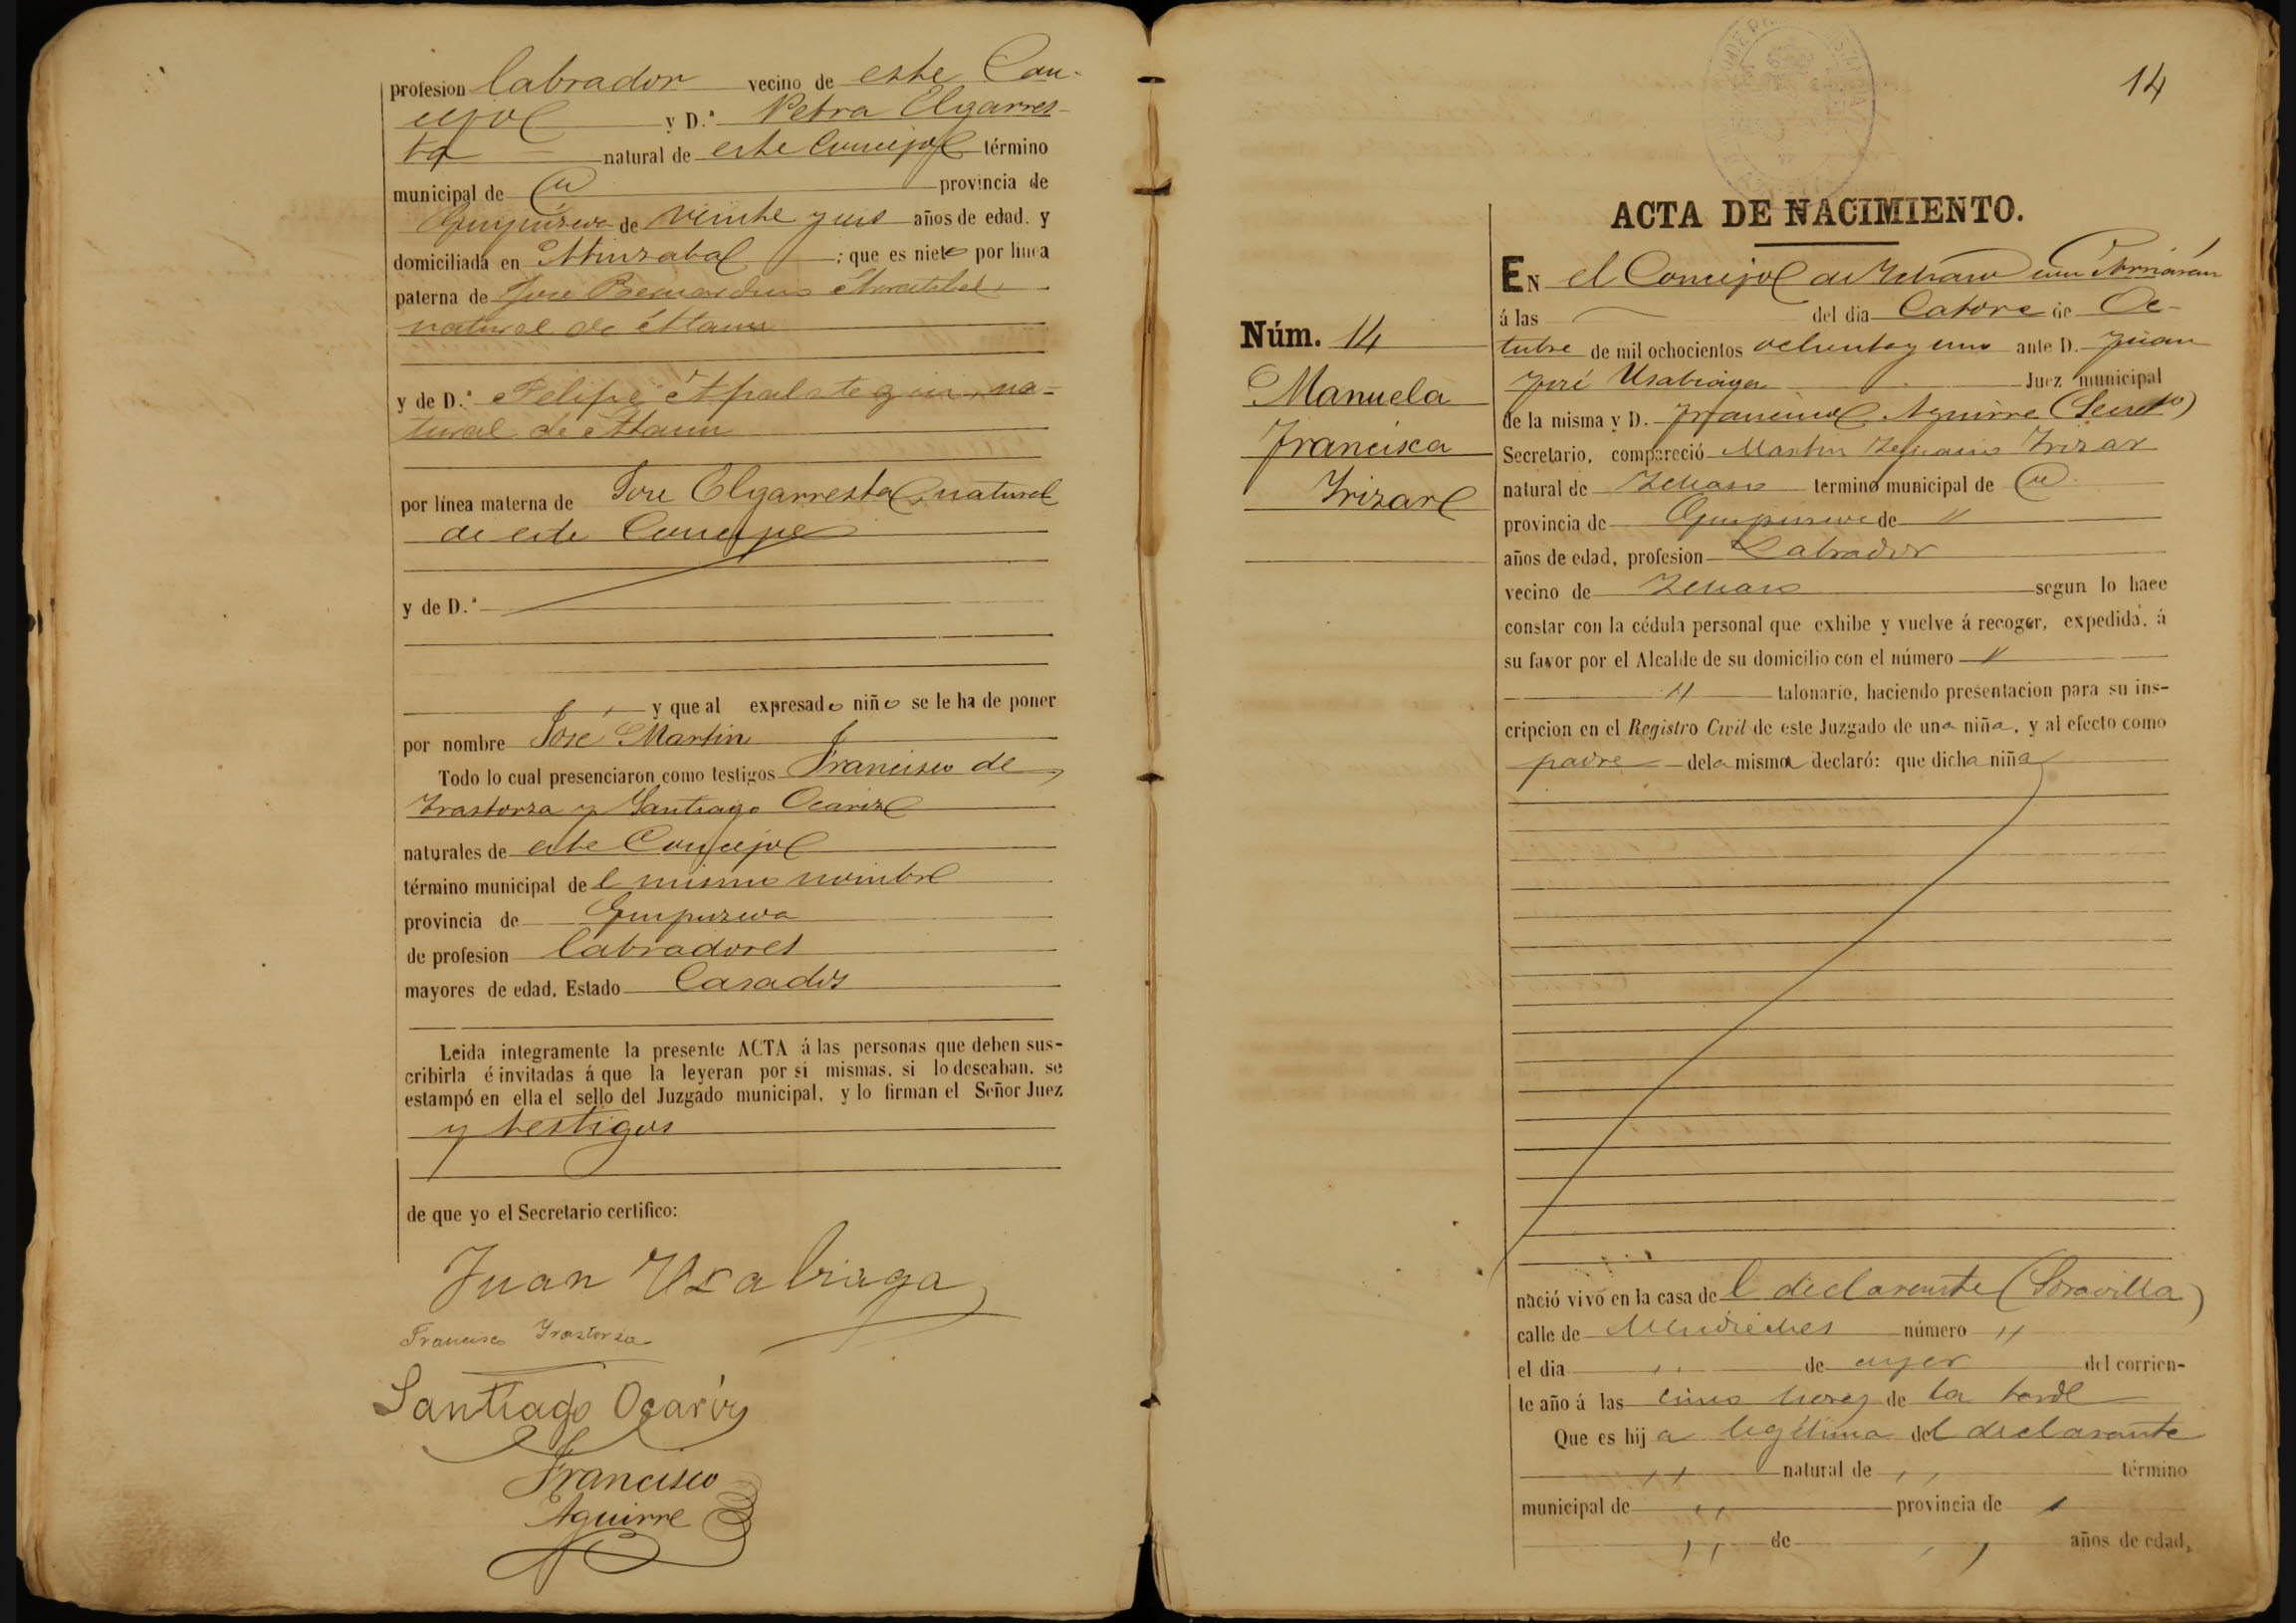 profesion labrador vecino de este Con-
cejo y D.ª Petra Elgarres-
ta natural de este Concejo término
municipal de id provincia de
Guipúzcoa de veinte y seis años de edad. y
domiciliada en ; que es nieto por línea
paterna de José Bernardino
natural de Ataun
y de D.ª Felipe Apalategui, na-
tural de Ataun
por línea materna de José Elgarresta, natural
de este Concejo
y de D.ª
y que al expresado niño se le ha de poner
por nombre José Martin
Todo lo cual presenciaron como testigos Francisco de
Irastorza y Santiago Ocariz
naturales de este Concejo
término municipal de l mismo nombre
provincia de Guipuzcoa
de profesion labradores
mayores de edad, Estado Casados
Leida integramente la presente ACTA á las personas que deben sus-
cribirla é invitadas á que la leyeran por si mismas, si lo deseaban, se
estampó en ella el sello del Juzgado municipal, y lo firman el Señor Juez
y testigos
de que yo el Secretario certifico:
Juan Usabiaga
Francisco Irastorza
Santiago Ocariz
Francisco
Aguirre
14
ACTA DE NACIMIENTO.
Núm. 14
Manuela
Francisca
Irizar
EN el Concejo de Ichaso con Arriarán
á las del dia Catorce de Oc-
tubre de mil ochocientos ochenta y uno ante D. Juan
José Usabiaga Juez municipal
de la misma y D. Francisco Aguirre (Secretº)
Secretario, compareció Martin Ignacio Irizar
natural de Ichaso termino municipal de id
provincia de Guipuzcoa de "
años de edad, profesion Labrador
vecino de Ichaso segun lo hace
constar con la cédula personal que exhibe y vuelve á recoger, expedida, á
su favor por el Alcalde de su domicilio con el número "
" talonario, haciendo presentacion para su ins-
cripcion en el Registro Civil de este Juzgado de una niña, y al efecto como
padre dela misma declaró: que dicha niña
nació vivo en la casa de l declarante (Soravilla)
calle de número "
el dia " de ayer del corrien-
te año á las cinco horas de la tarde
Que es hija legítima del declarante
" natural de " término
municipal de " provincia de "
" de " años de edad,